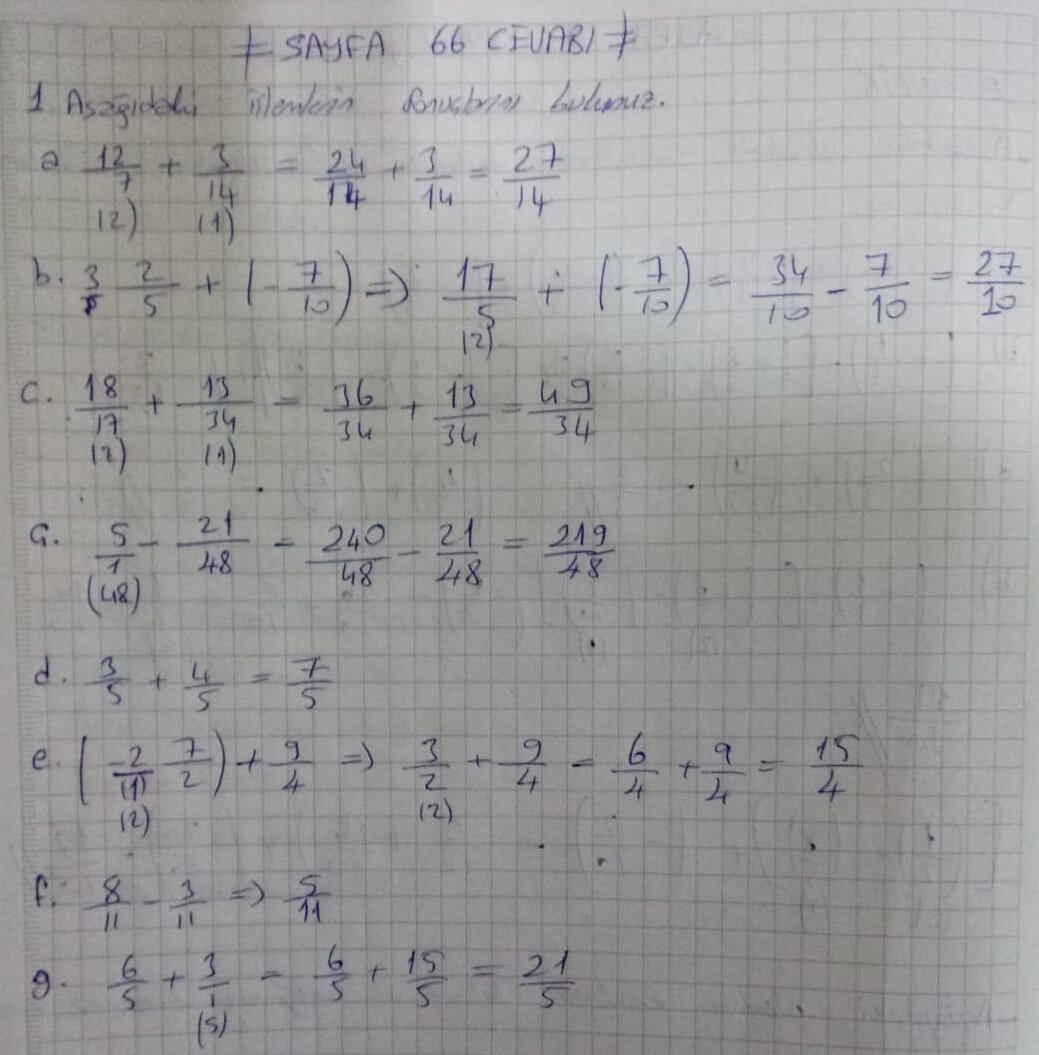 ≠ SAYFA 66 CEVABI ≠
1 Aşağıdaki işlemlerin sonuçlarını bulunuz.
a. 12/7 + 3/14 = 24/14 + 3/14 = 27/14
(2) (1)
b. 3 2/5 + (- 7/10) => 17/5 + (- 7/10) = 34/10 - 7/10 = 27/10
(2)
c. 18/17 + 13/34 = 36/34 + 13/34 = 49/34
(2) (1)
ç. 5/1 - 21/48 = 240/48 - 21/48 = 219/48
(48)
d. 3/5 + 4/5 = 7/5
e. (-2/(1) 7/2) + 9/4 => 3/2 + 9/4 = 6/4 + 9/4 = 15/4
(2) (2)
f. 8/11 - 3/11 => 5/11
g. 6/5 + 3/1 = 6/5 + 15/5 = 21/5
(5)